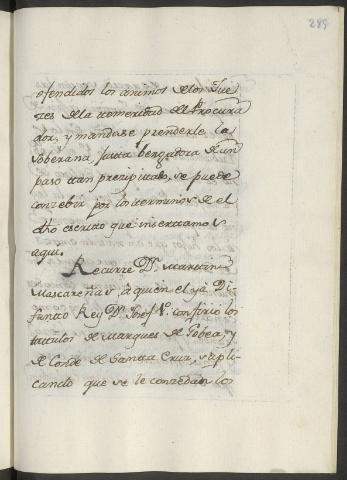 285
ofendidos los animos de los Jue
zes de la temeridad del Procura
dor, y mandase prenderle, la
soberana, justa bengadora de un
paso ttan prezipittado, se puede
conzebir por los terminos de el
dho escritto que inserttamos
aqui.
Recurre Dn. Marttin
Mascareñas, à quien el yà Di-
funtto Rey Dn. Josef 1º. confirio los
tittulos de Marques de Gobea, y
de Conde de Santta Cruz, supli-
cando que se le conzedan los